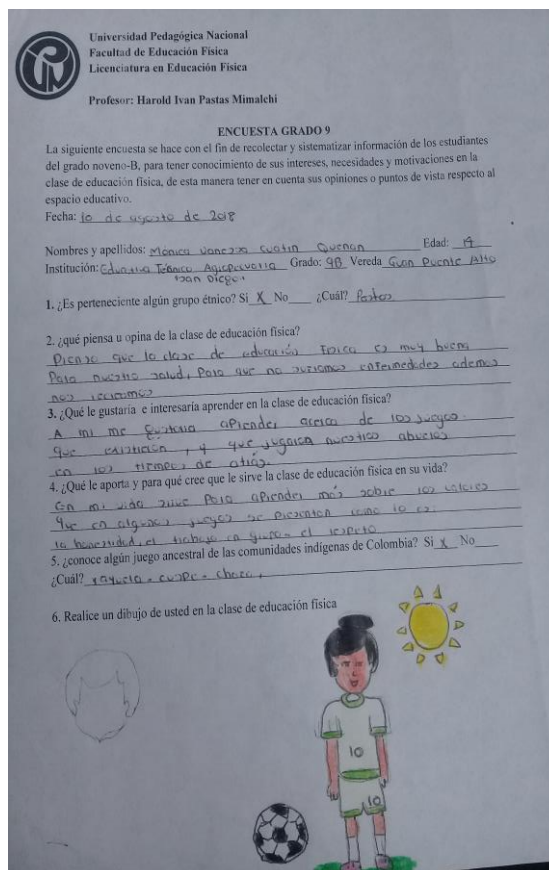 Universidad Pedagógica Nacional
Facultad de Educación Física
Licenciatura en Educación Física
Profesor: Harold Ivan Pastas Mimalchi
ENCUESTA GRADO 9
La siguiente encuesta se hace con el fin de recolectar y sistematizar información de los estudiantes
del grado noveno-B, para tener conocimiento de sus intereses, necesidades y motivaciones en la
clase de educación física, de esta manera tener en cuenta sus opiniones o puntos de vista respecto al
espacio educativo.
Fecha: 10 de agosto de 2018
Nombres y apellidos: Mónica Vanezza Cuatin Quenan Edad: 14
Institución: Educativa Técnico Agropecuaria Grado: 9B Vereda Guan Puente Alto
San Diego
1. ¿Es perteneciente algún grupo étnico? Si X No ¿Cuál? Pastos
2. ¿qué piensa u opina de la clase de educación física?
Pienso que la clase de educación Fisica es muy buena
Para nuestra salud, Para que no suframos enfermedades ademas
nos
3. ¿Qué le gustaría e interesaría aprender en la clase de educación física?
A mi me gustaria aPrender acerca de los juegos
que existieron, y que jugaron nuestros abuelos
en los tiempos de atrás.
4. ¿Qué le aporta y para qué cree que le sirve la clase de educación física en su vida?
en mi vida sirve Para aPrender más sobre los valores
que en algunos juegos se Presentan como lo es
la honestidad, el trabajo en grupo el respeto
5. ¿conoce algún juego ancestral de las comunidades indígenas de Colombia? Si X No
¿Cuál? rayuela - cuspe - chaza
6. Realice un dibujo de usted en la clase de educación física
10
10